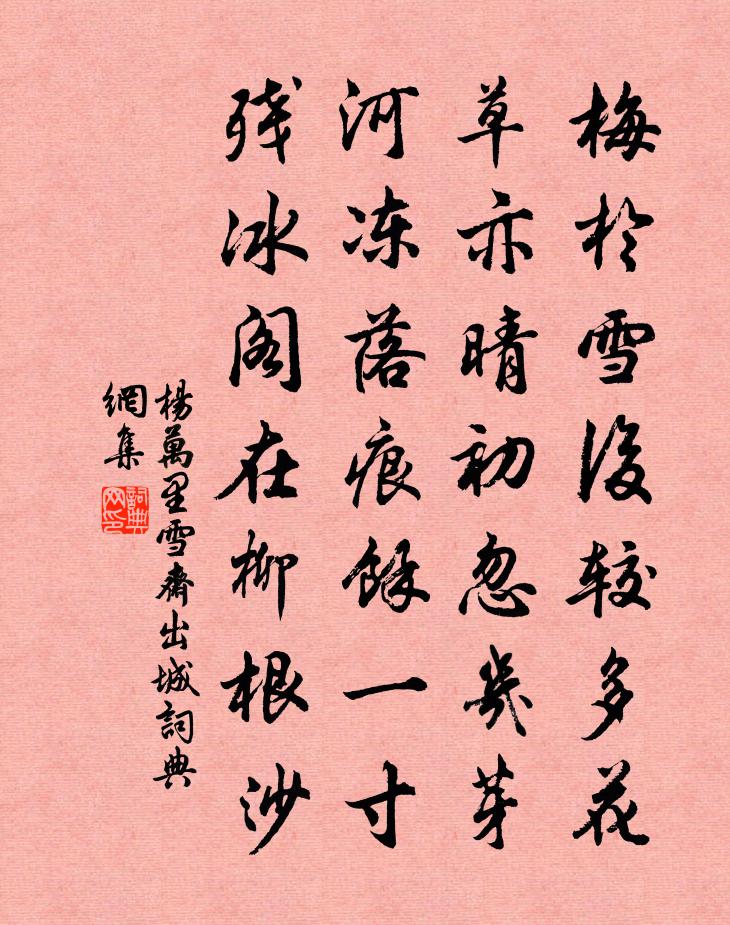 梅於雪後较多花
草亦晴初忽幾芽
河冻落痕餘一寸
残冰阁在柳根沙
楊萬里雪齋出城詞典
網集
詞典
网印